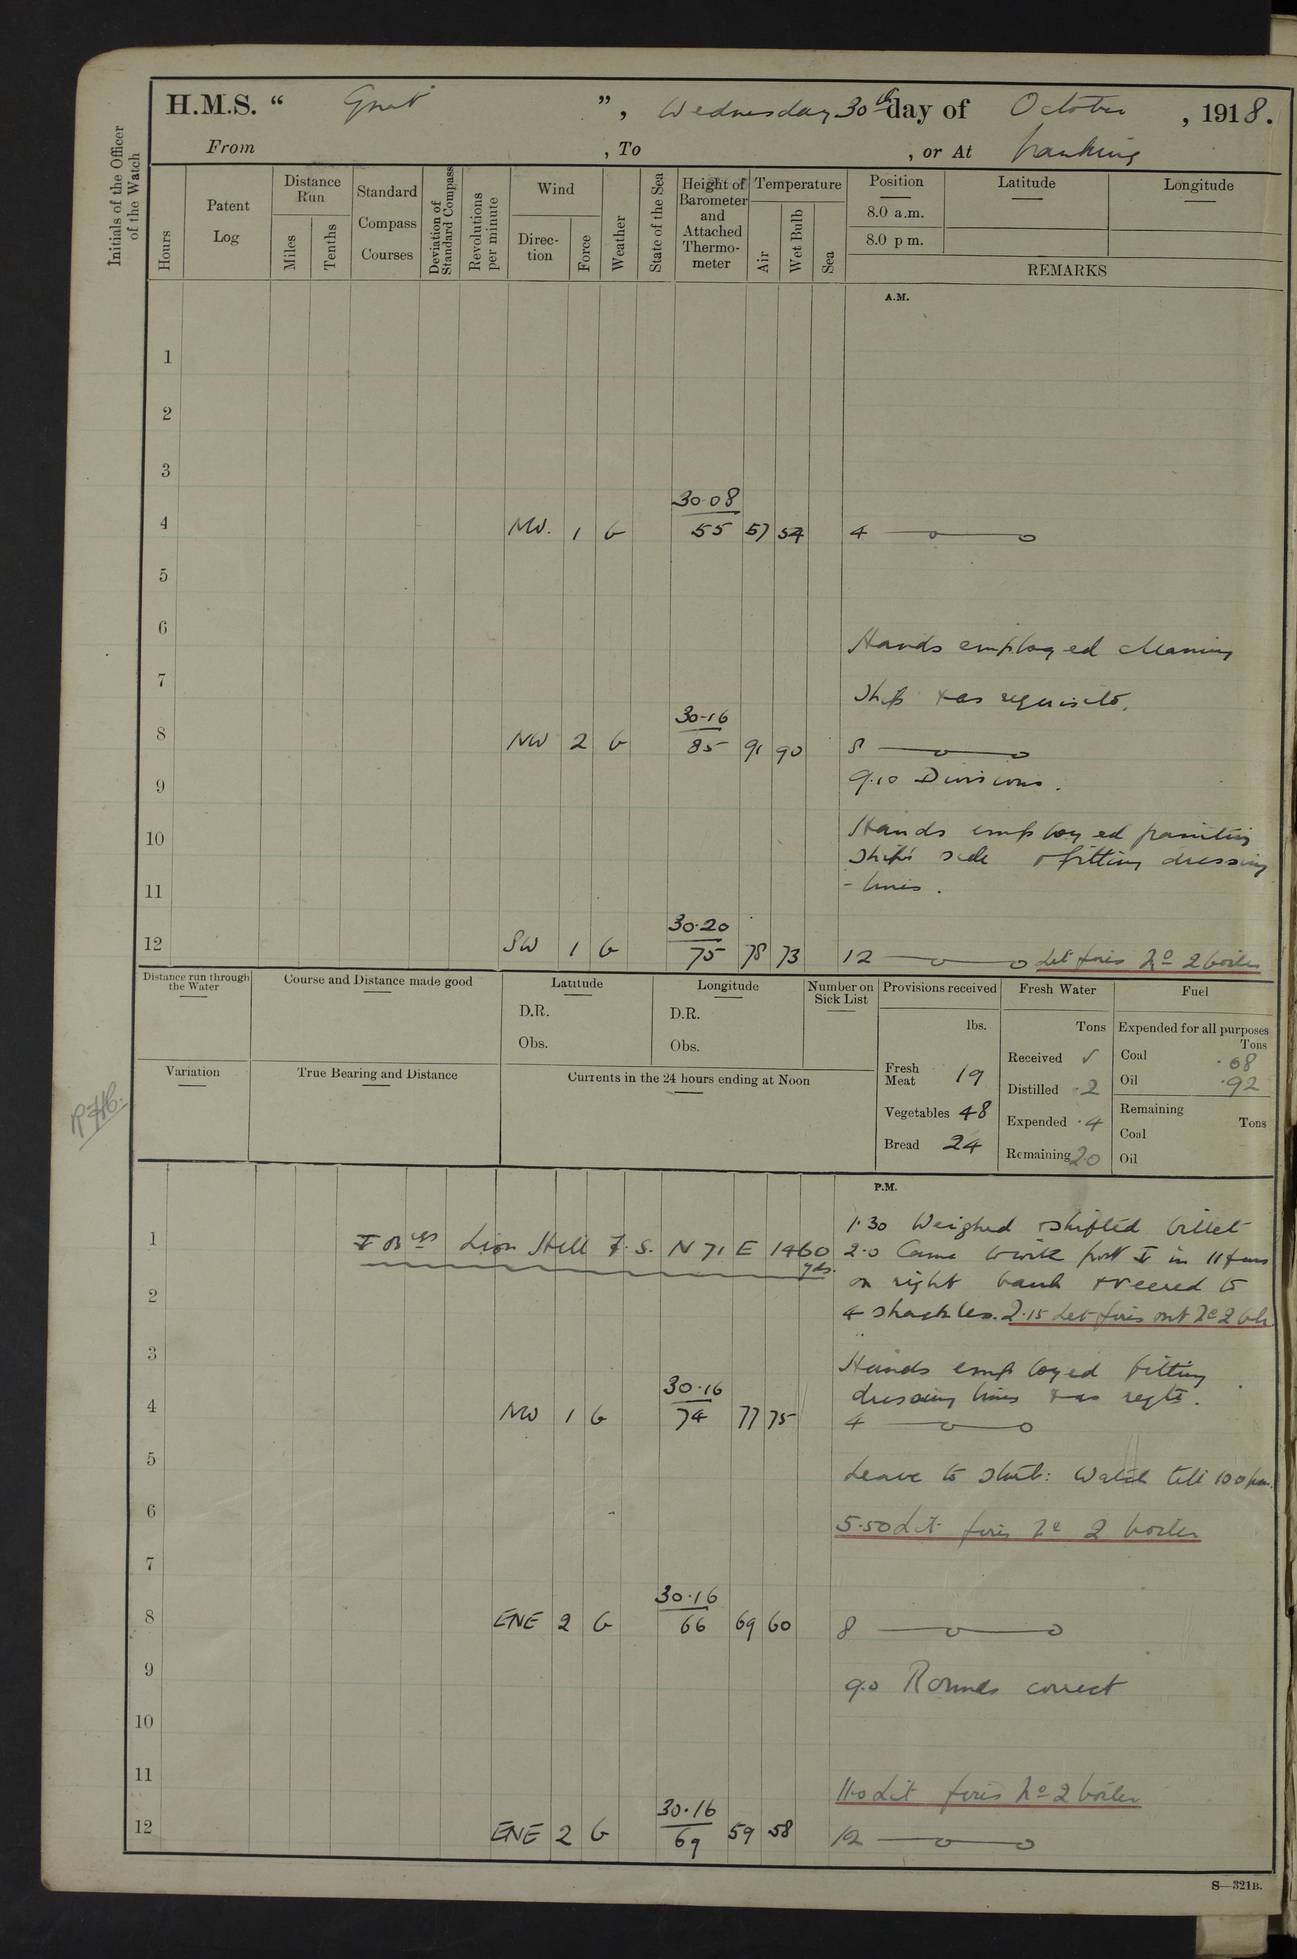 H.M.S. " Gnat ", Wednesday 30th day of October, 1918.
From , To , or At Nanking
Initials of the Officer of the Watch
Hours
Patent Log
Distance Run
Miles
Tenths
Standard Compass Courses
Deviation of Standard Compass
Revolutions per minute
Wind
Direction
Force
Weather
State of the Sea
Height of Barometer and Attached Thermometer
Temperature
Air
Wet Bulb
Sea
Position
8.0 a.m.
8.0 p m.
Latitude
Longitude
REMARKS
A.M.
1
2
3
30.08
4 NW. 1 b 55 57 54 4
5
6
Hands employed cleaning
7
Ship & as requisite.
30.16
8 NW 2 b 85 91 90 8
9 9.10 Divisions.
10 Hands employed painting
Ship's side & fitting dressing
11 - lines.
30.20
12 SW 1 b 75 78 73 12 Let fires No 2 boiler
Distance run through the Water
Course and Distance made good
Latitude
D.R.
Obs.
Longitude
D.R.
Obs.
Number on Sick List
Provisions received
lbs.
Fresh Meat 19
Vegetables 48
Bread 24
Fresh Water
Tons
Received √
Distilled .2
Expended .4
Remaining 20
Fuel
Expended for all purposes
Tons
Coal .08
Oil .92
Remaining
Tons
Coal
Oil
Variation
True Bearing and Distance
Currents in the 24 hours ending at Noon
P.M.
1.30 Weighed & shifted billet
1 Lion Hill F.S. N 71 E 1460 yds. 2.0 Came to with port in 11 fms
on right bank & veered to
2 4 shackles. 2.15 Let fires out No 2 blr
3 Hands employed fitting
30.16 dressing lines & as reqte.
4 NW 1 b 74 77 75 4
5 Leave to Starb: Watch till 10 0 pm.
6 5.50 Lit fires No 2 boiler
7
30.16
8 ENE 2 b 66 69 60 8
9 9.0 Rounds correct
10
11 11.0 Lit fires No 2 boiler
30.16
12 ENE 2 b 69 59 58 12
S—321B.